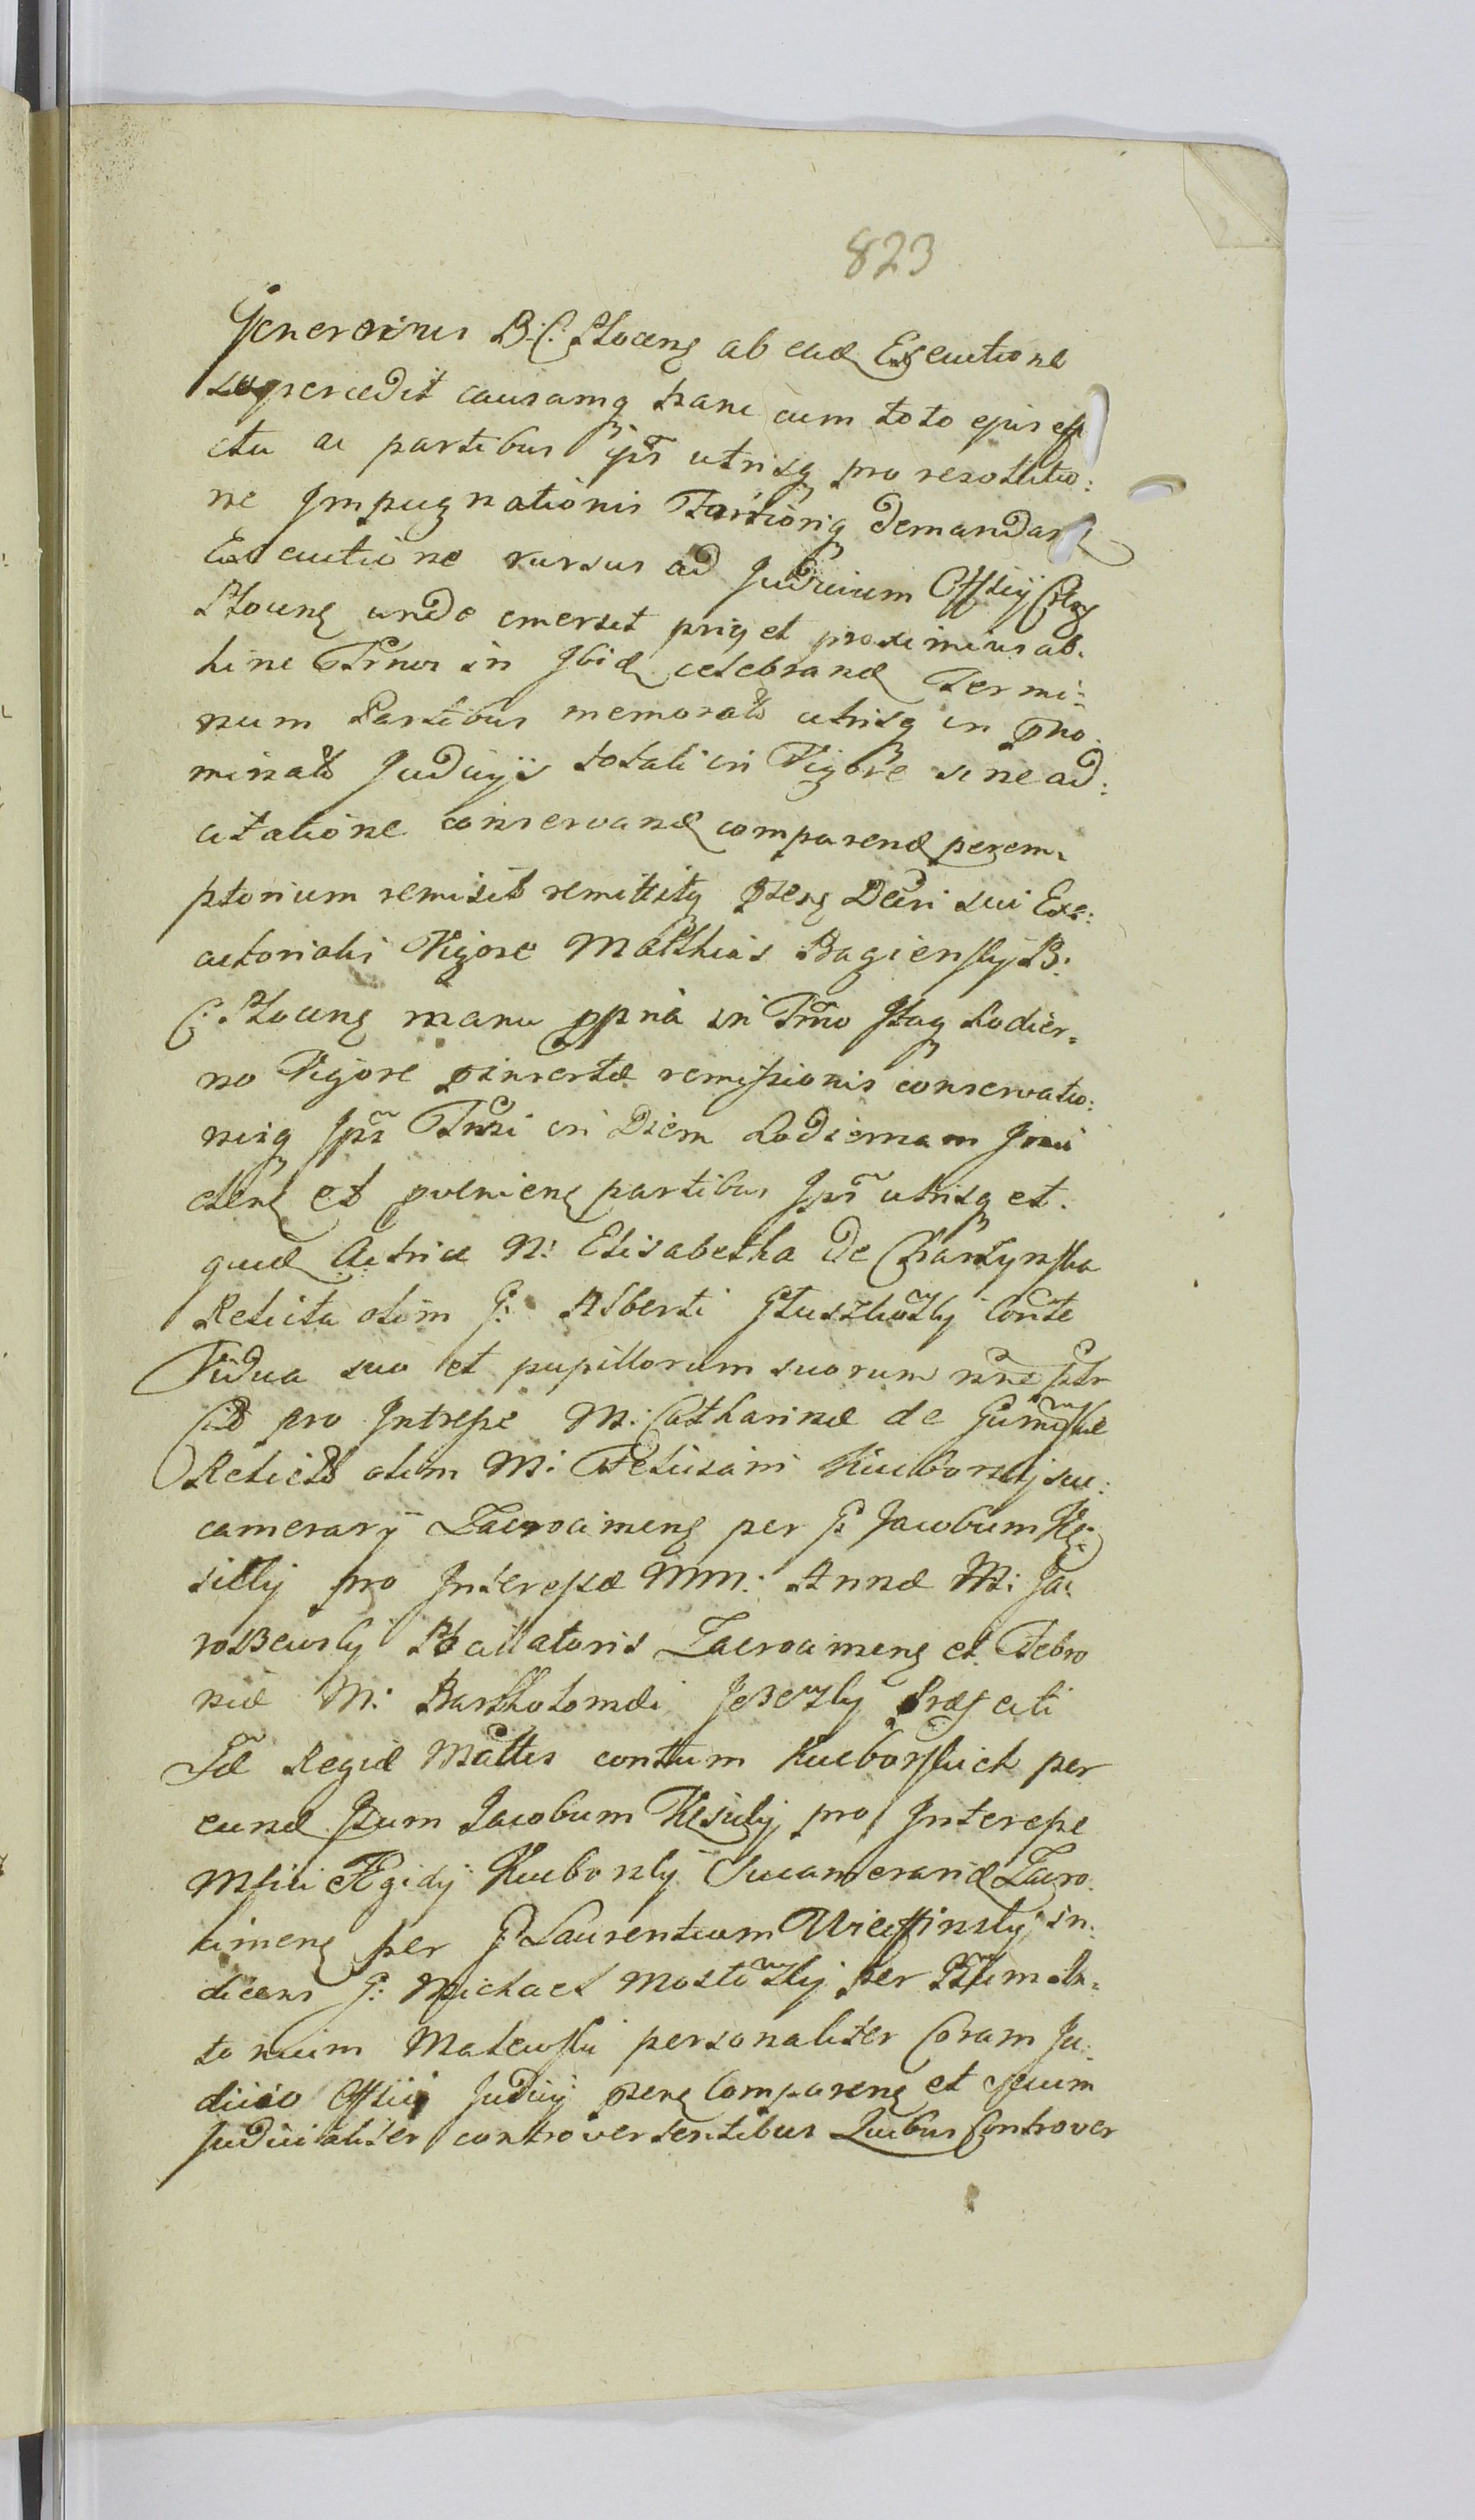 823
Generosius B: C: Plocens ab ead Executione
supercedit causamq hanc cum toto ejus effe
ctu ac partibus ips utrisq pro resolutio:
ne Impugnationis Tartionq demandar
Executione rursus ad Judicium Officij
Plocens unde emersit priq et proximius ab.
hinc Trmor in Ibid celebrand Termi:
num Partibus memorats utrisq in pno.
minats Judicijs totali in Vigore sine ad:
citatione conservand comparend perem:
ptorium remisit remittitq psens Decri sui Exe:
cutorialis Vigore Matthias Bagienski B:
C: Plocens manu ppria in Trmo Itaq hodier:
no Vigore pinsertæ remissionis conservatio:
nisq ips Trmi in Diem hodiernam Inci
dens et pveniens partibus Ips utrisq et.
quid Actrice N: Elisabetha de
Relicta olim G: Alberti Gluszkowski
Vidua suo et pupillorum suorum nne
pro Intresse M: Catharinæ de
Relicta olim M: Felisiani Kucborski suc:
camerarij Zacrocimens per G: Jacobum Ke:
sicki pro Interesse MM: Annæ M: Ja:
roszewski Zacrocimens et Febro
niæ M: Bartholomæi Jezewski Præfecti
Sæ Regiæ Mattis contum Kucborskich per
eund Gsum Jacobum Kesicki pro Interesse
Msici Ægidij Kucborski Succamerarid Zacro.
cimens per G Laurentium in:
dicens G: Michael Mostowski per An:
tonium personaliter Coram Ju:
dicio Officij Judicij psens Comparens et secum
Judicialiter controversentibus Quibus Controver